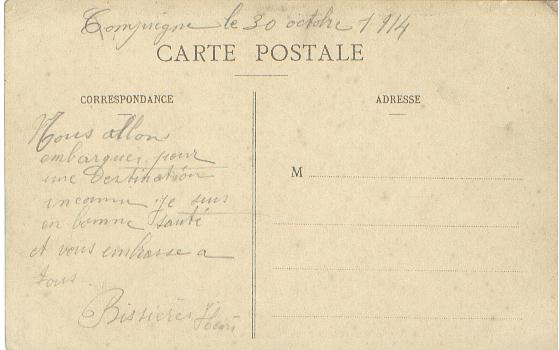 Compiegne le 30 octobre 1914
CARTE POSTALE
CORRESPONDANCE
ADRESSE
Nous allons
embarquer pour
une Destination
inconnu je suis
en bonne santé
et vous embrasse a
tous.
Bissières Henri
M